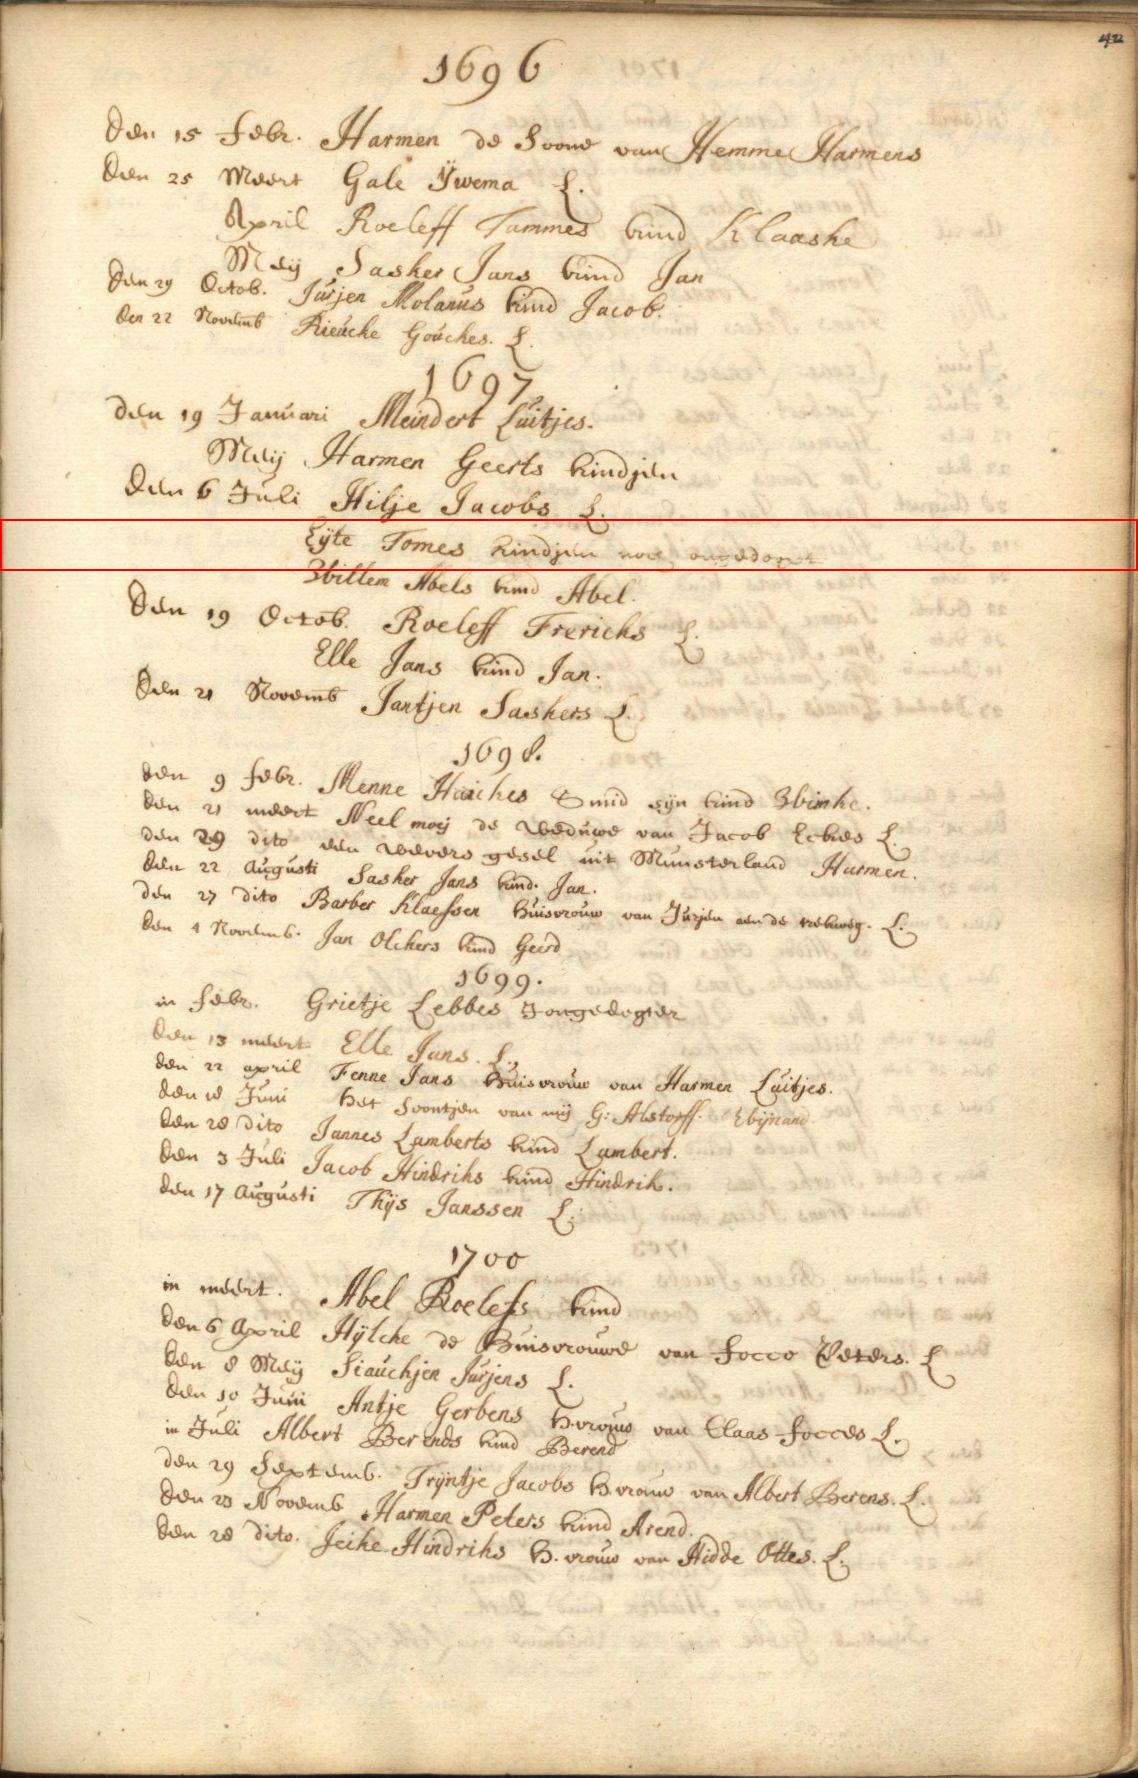 42
1696
Den 15 Febr. Harmen de Soone van Hemme Harmens
Den 25 Meert Gale Ywema L.
April Roeleff Tammes kind Klaaske
Meij Sasker Jans kind Jan
Den 29 Octob. Jurjen Molanus kind Jacob.
Den 22 Novemb Rieucke Gouckes. L.
1697
Den 19 Januari Meindert Luitjes.
Meij Harmen Geerts kindjen
Den 6 Juli Hilje Jacobs L.
Eijte Tomes kindjen noch ongedopt
Willem Abels kind Abel.
Den 19 Octob. Roeleff Frerichs L.
Elle Jans kind Jan.
Den 21 Novemb Jantjen Saskers L.
1698.
Den 9 Febr. Menne Haickes Smid sijn kind Wimke.
Den 21 meert Neel moij de weduwe van Jacob Eckes L.
Den 29 dito een wevers gesel uit Munsterland Harmen.
Den 22 Augusti Sasker Jans kind. Jan.
Den 27 dito Barber Klaessen huisvrouw van Jurjen aen de trekweg. L.
Den 1 Novemb. Jan Olckers kind Geerd
1699.
in Febr. Grietje Lebbes Jongedogter
Den 13 meert Elle Jans. L.
Den 22 april Fenne Jans huisvrouw van Harmen Luitjes.
Den 18 Juni het soontjen van mij G: Alstorff. Wijnand
Den 28 dito Jannes Lamberts kind Lambert.
Den 3 Juli Jacob Hindriks kind Hindrik.
Den 17 Augusti Thijs Janssen L.
1700
in meert. Abel Roelefs kind
Den 6 April Hijlcke de Huisvrouwe van Focco Peters. L
Den 8 Meij Siauckjen Jurjens L.
Den 10 Juni Antje Gerbens h.vrouw van Claas Focces L.
in Juli Albert Berends kind Berend
Den 29 Septemb. Trijntje Jacobs h.vrouw van Albert Berens. L.
Den 23 Novemb Harmen Peters kind Arend.
Den 28 dito. Jeike Hindriks h. vrouw van Hidde Ottes. L.